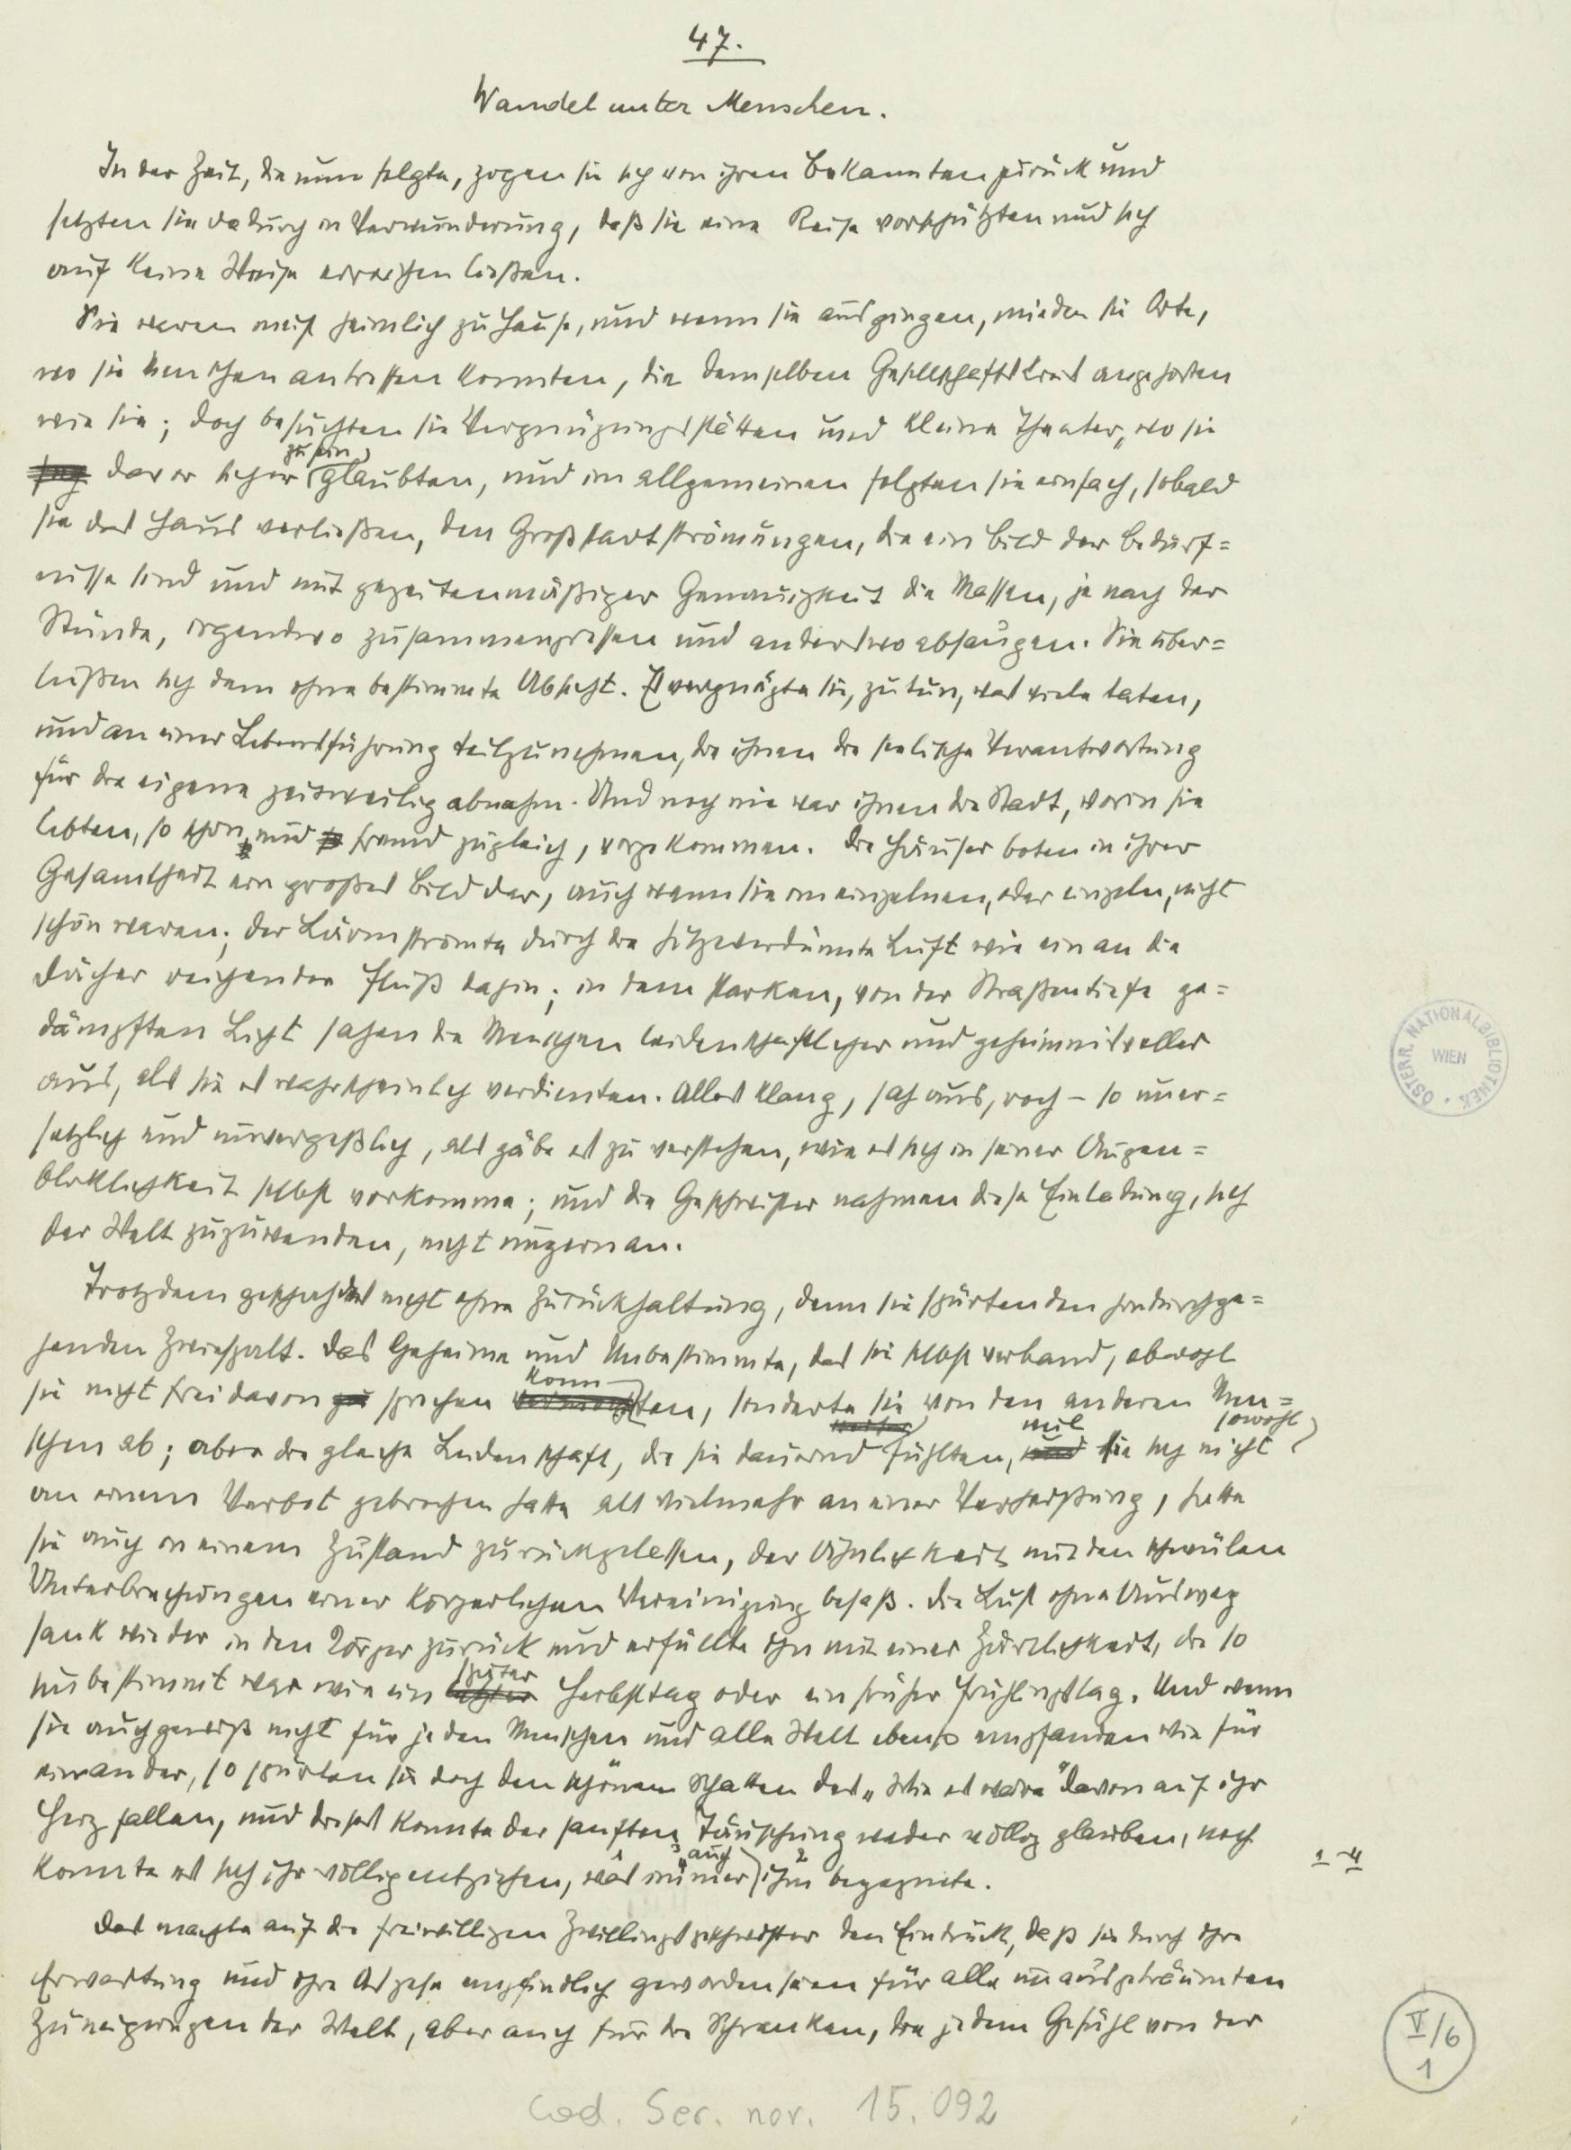 47.
Wandel unter Menschen.
In der Zeit, die nun folgte, zogen sie sich von ihren Bekannten zurück und
setzten sie dadurch in Verwunderung, daß sie eine Reise vorschützten und sich
auf keine Weise erreichen ließen.
Sie waren meist heimlich zu Hause, und wenn sie ausgingen, mieden sie Orte,
wo sie Menschen antreffen konnten, die demselben Gesellschaftskreis angehörten
wie sie; doch besuchten sie Vergnügungsstätten und kleine Theater, wo sie
davor sicher zu sein glaubten, und im allgemeinen folgten sie einfach, sobald
sie das Haus verließen, den Großstadtströmungen, die ein Bild der Bedürf=
nisse sind und mit gezeitenmäßiger Genauigkeit die Massen, je nach der
Stunde, irgendwo zusammenpressen und anderswo absaugen. Sie über=
ließen sich dem ohne bestimmte Absicht. Es vergnügte sie, zu tun, was viele taten,
und an einer Lebensführung teilzunehmen, die ihnen die seelische Verantwortung
für die eigene zeitweilig abnahm. Und noch nie war ihnen die Stadt, worin sie
lebten, so schön und fremd zugleich, vorgekommen. Die Häuser boten in ihrer
Gesamtheit ein großes Bild dar, auch wenn sie im einzelnen, oder einzeln, nicht
schön waren; der Lärm strömte durch die hitzeverdünnte Luft wie ein an die
Dächer reichender Fluß dahin; in dem starken, von der Straßentiefe ge=
dämpften Licht sahen die Menschen leidenschaftlicher und geheimnisvoller
aus, als sie es wahrscheinlich verdienten. Alles klang, sah aus, roch – so uner=
setzlich und unvergeßlich, als gäbe es zu verstehen, wie es sich in seiner Augen=
blicklichkeit selbst vorkomme; und die Geschwister nahmen diese Einladung, sich
der Welt zuzuwenden, nicht ungern an.
Trotzdem geschah das nicht ohne Zurückhaltung, denn sie spürten den hindurchge=
henden Zwiespalt. Das Geheime und Unbestimmte, das sie selbst verband, obwohl
sie nicht frei davon sprechen konnten, sonderte sie von den anderen Men=
schen ab; aber die gleiche Leidenschaft, die sie dauernd fühlten, weil sie sich nicht sowohl
an einem Verbot gebrochen hatte als vielmehr an einer Verheißung, hatte
sie auch in einem Zustand zurückgelassen, der Ähnlichkeit mit den schwülen
Unterbrechungen einer körperlichen Vereinigung besaß. Die Lust ohne Ausweg
sank wieder in den Körper zurück und erfüllte ihn mit einer Zärtlichkeit, die so
unbestimmt war wie ein später Herbsttag oder ein früher Frühlingstag. Und wenn
sie auch gewiß nicht für jeden Menschen und alle Welt ebenso empfanden wie für
einander, so spürten sie doch den schönen Schatten des „Wie es wäre" davon auf ihr
Herz fallen, und dieses konnte der sanften Täuschung weder völlig glauben, noch
konnte es sich ihr völlig entziehen, was immer auch ihm begegnete.
1-4
Das machte auf die freiwilligen Zwillingsgeschwister den Eindruck, daß sie durch ihre
Erwartung und ihre Askese empfindlich geworden seien für alle unausgeträumten
Zuneigungen der Welt, aber auch für die Schranken, die jedem Gefühl von der
ÖSTERR. NATIONALBIBLIOTHEK
WIEN
V/6
1
Cod. Ser. nov. 15.092